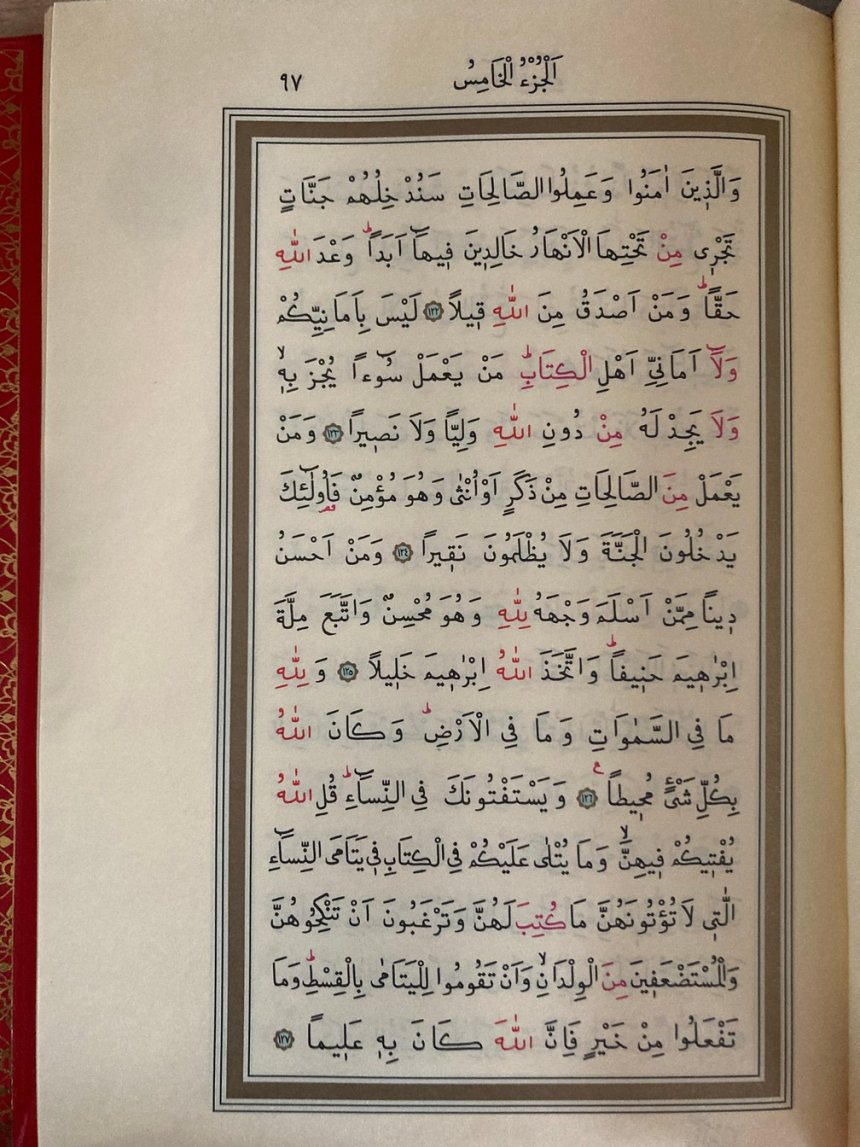 اَلْجُزْءُ الْخَامِسُ ٩٧
وَالَّذ۪ينَ اٰمَنُوا وَعَمِلُوا الصَّالِحَاتِ سَنُدْخِلُهُمْ جَنَّاتٍ
تَجْر۪ى مِنْ تَحْتِهَا الْاَنْهَارُ خَالِد۪ينَ ف۪يهَٓا اَبَدًاۜ وَعْدَ اللّٰهِ
حَقًّاۜ وَمَنْ اَصْدَقُ مِنَ اللّٰهِ ق۪يلًا ﴿١٢٢﴾ لَيْسَ بِاَمَانِيِّكُمْ
وَلَٓا اَمَانِيِّ اَهْلِ الْكِتَابِۜ مَنْ يَعْمَلْ سُٓوءًا يُجْزَ بِه۪ۙ
وَلَا يَجِدْ لَهُ مِنْ دُونِ اللّٰهِ وَلِيًّا وَلَا نَص۪يرًا ﴿١٢٣﴾ وَمَنْ
يَعْمَلْ مِنَ الصَّالِحَاتِ مِنْ ذَكَرٍ اَوْ اُنْثٰى وَهُوَ مُؤْمِنٌ فَاُو۬لٰٓئِكَ
يَدْخُلُونَ الْجَنَّةَ وَلَا يُظْلَمُونَ نَق۪يرًا ﴿١٢٤﴾ وَمَنْ اَحْسَنُ
د۪ينًا مِمَّنْ اَسْلَمَ وَجْهَهُ لِلّٰهِ وَهُوَ مُحْسِنٌ وَاتَّبَعَ مِلَّةَ
اِبْرٰه۪يمَ حَن۪يفًاۜ وَاتَّخَذَ اللّٰهُ اِبْرٰه۪يمَ خَل۪يلًا ﴿١٢٥﴾ وَلِلّٰهِ
مَا فِى السَّمٰوَاتِ وَمَا فِى الْاَرْضِۜ وَكَانَ اللّٰهُ
بِكُلِّ شَىْءٍ مُح۪يطًا۟ ﴿١٢٦﴾ وَيَسْتَفْتُونَكَ فِى النِّسَٓاءِۜ قُلِ اللّٰهُ
يُفْت۪يكُمْ ف۪يهِنَّۙ وَمَا يُتْلٰى عَلَيْكُمْ فِى الْكِتَابِ ف۪ى يَتَامَى النِّسَٓاءِ
الّٰت۪ى لَا تُؤْتُونَهُنَّ مَا كُتِبَ لَهُنَّ وَتَرْغَبُونَ اَنْ تَنْكِحُوهُنَّ
وَالْمُسْتَضْعَف۪ينَ مِنَ الْوِلْدَانِۙ وَاَنْ تَقُومُوا لِلْيَتَامٰى بِالْقِسْطِۜ وَمَا
تَفْعَلُوا مِنْ خَيْرٍ فَاِنَّ اللّٰهَ كَانَ بِه۪ عَل۪يمًا ﴿١٢٧﴾